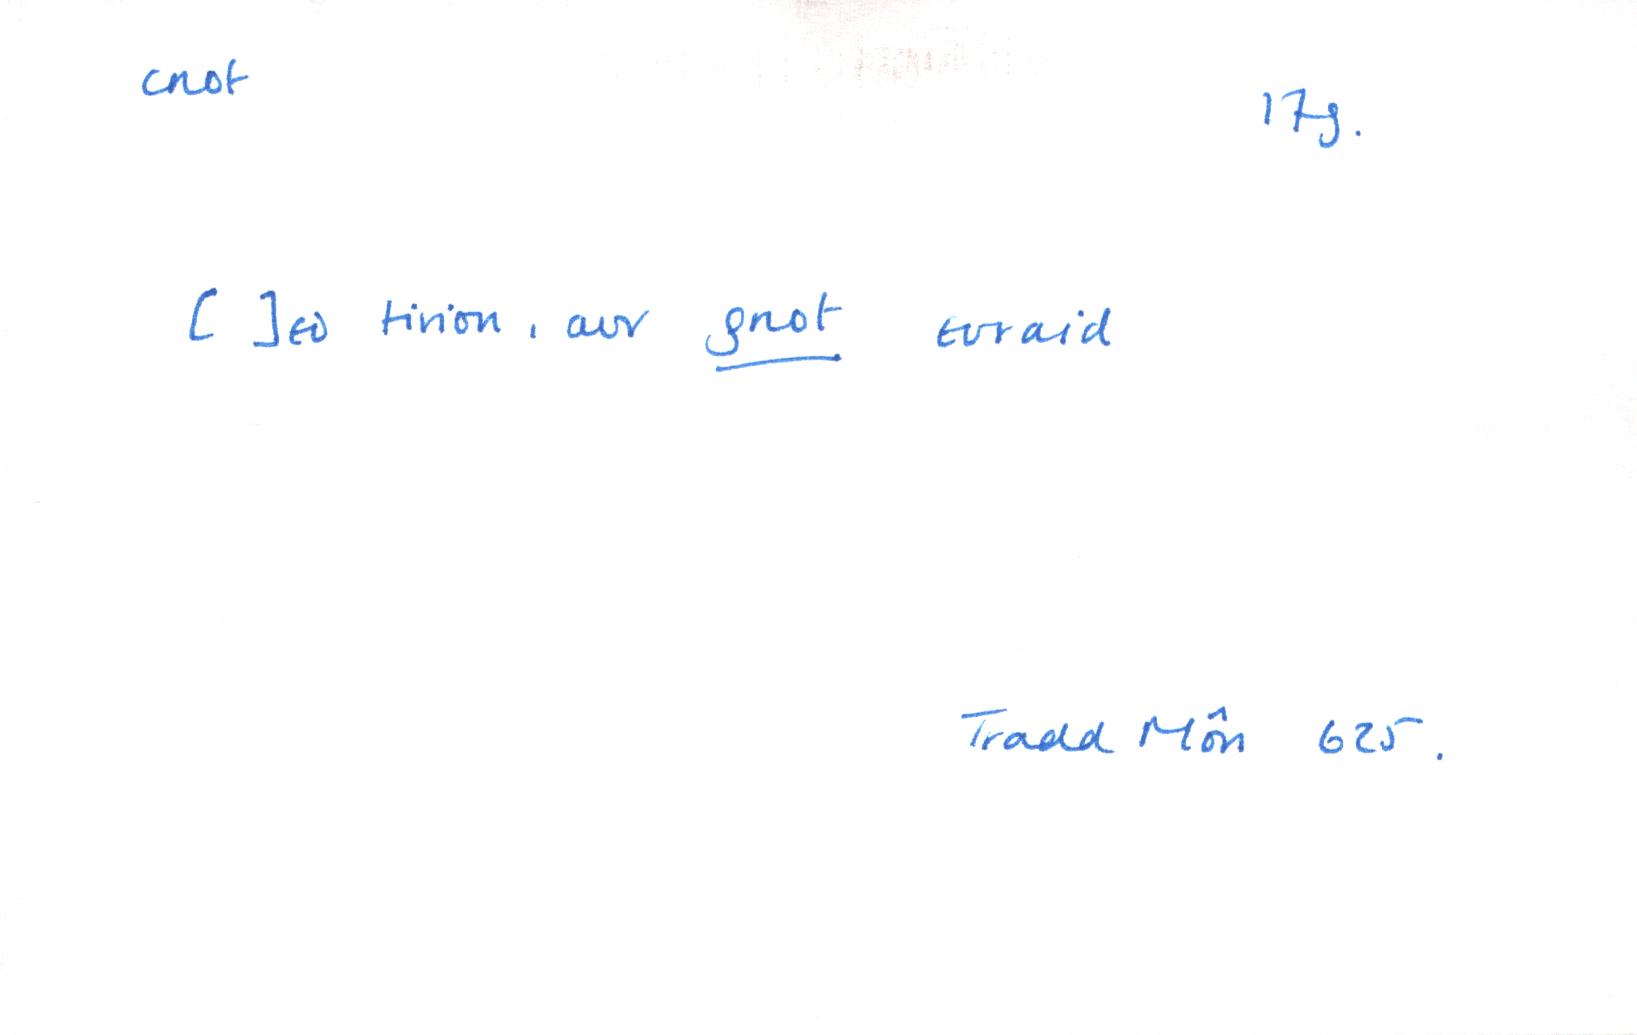 cnot
17g.
[ ]ew tirion, aur gnot euraid
Tradd Môn 625.